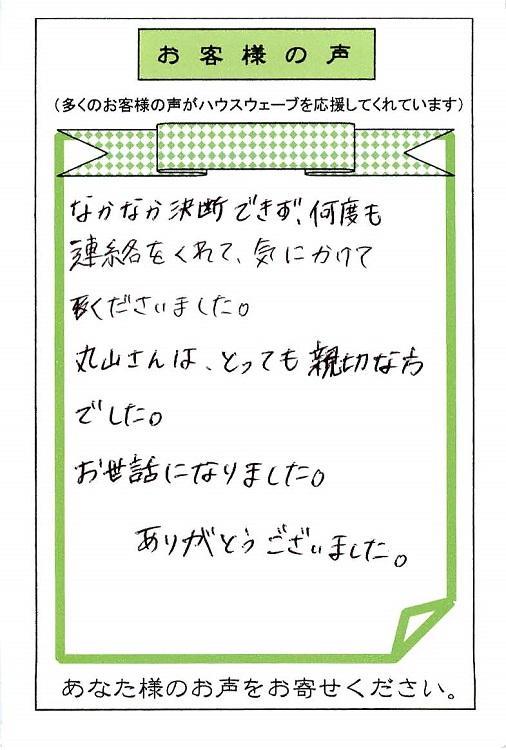 お客様の声
（多くのお客様の声がハウスウェーブを応援してくれています）
なかなか決断できず、何度も
連絡をくれて、気にかけて
くださいました。
丸山さんは、とっても親切な方
でした。
お世話になりました。
ありがとうございました。
あなた様のお声をお寄せください。